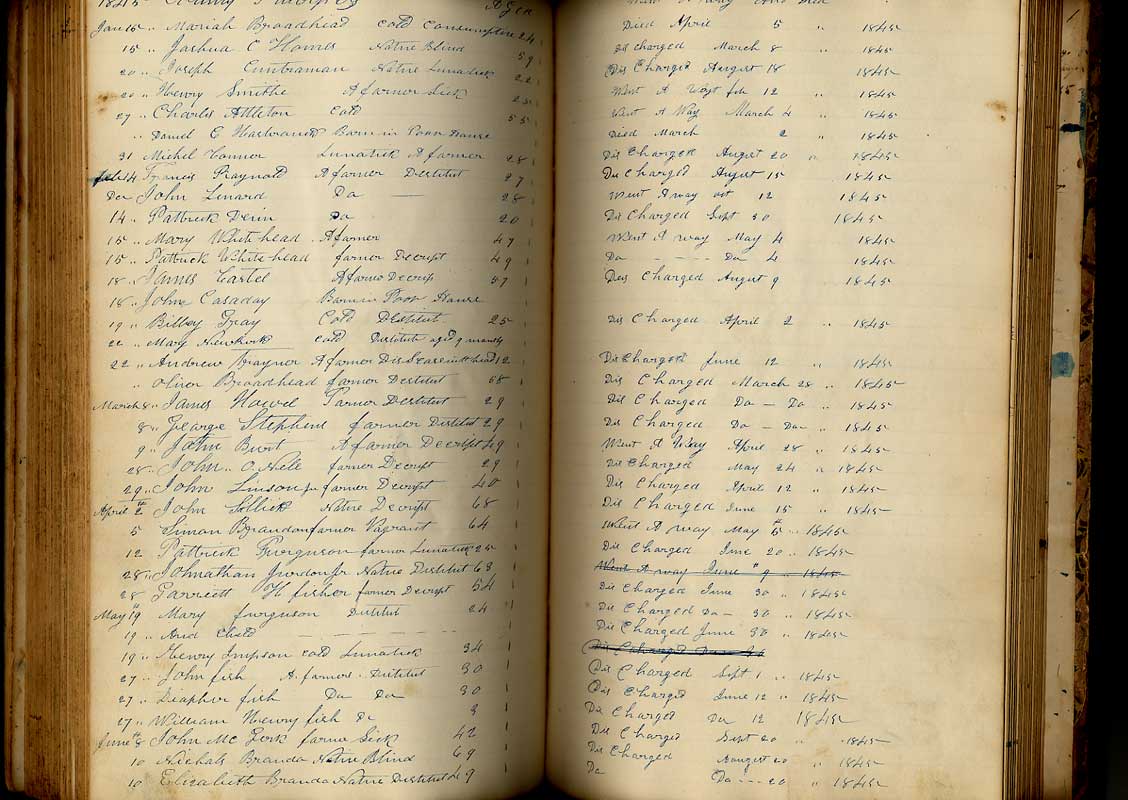 1845 County Paupers Ages
Jan 15 " Mariah Broadhead Cold Consumptive 24 Died April 5 " 1845
15 " Joshua C Homes Native Blind 59 Dis charged March 8 " 1845
20 " Joseph Native Lunatick 22 Dis Charged August 18 1845
20 " Henry Smithe A farnor Sick 25 Went A Way feb 12 " 1845
27 " Charles Attleton Cold 55 Went A Way March 4 " 1845
" Daniel E Hasbrouck Born in Poor House Died March 2 " 1845
31 Michel Connor Lunatick A farnor 28 Dis Charged August 20 " 1845
feb 14 Francis Raynold A farnor Destitut 27 Dis Charged August 15 1845
Do John Linard Do — 28 Went A way oct 12 1845
14 " Pattrick Do 20 Dis Charged Sept 30 1845
15 " Mary Whitehead A farnor 47 Went A way May 4 1845
15 " Pattrick Whitehead farnor Decrept 49 Do - - - - Do 4 1845
18 " James A farnor Decrip 57 Dis Charged August 9 1845
18 " John Casaday Born in Poor House
19 " Gray Cold Destitut 25 Dis Charged April 2 " 1845
22 " Mary Newkirk Cold Destitute aged 9 months
22 " Andrew Traynor A farnor Dissease in the head 12 Dis Charged June 12 " 1845
" Oliver Broadhead farnor Destitut 68 Dis Charged March 28 " 1845
March 8 " James Howd Farnor Destitut 29 Dis Charged Do — Do " 1845
8 " George Stephens farnor Destitut 29 Dis Charged Do — Do " 1845
9 " John Burt A farnor Decript 29 Went A Way April 28 " 1845
28 " John O Neile farnor Decript 29 Dis Charged May 24 " 1845
29 " John Linson Jr farnor Decript 40 Dis Charged April 12 " 1845
April 2 th John Sillick Native Decript 68 Dis Charged June 15 " 1845
5 Simon Brandon farnor Vagrant 64 Went A way May th 5 " 1845
12 Pattrick Furguson farnor Lunatick 25 Dis Charged June 20 " 1845
28 " Johnathan Jurdon Jr Native Destitut 63 Went A way June th 9 " 1845
28 Garriett H fisher farnor Decript 54 Dis Charged June 30 " 1845
May th 19 Mary furguson Distitut 24 Dis Charged Do — 30 " 1845
19 " And Child — — — — — Dis Charged June 30 " 1845
19 " Henry Impson Cold Lunatick 34 Dis Charged
27 " John fish A farnor Distitut 30 Dis Charged Sept 1 " 1845
27 " fish Do Do 30 Dis Charged June 12 " 1845
27 " William Henry fish Do 3 Dis Charged Do 12 1845
June th 8 John Mc Gork farnor Sick 42 Dis Charged Sept 20 " 1845
10 Nichols Branda Native Blind 69 Dis Charged August 20 " 1845
10 Elizabeth Branda Native Distitut 49 Do Do - - - 20 " 1845